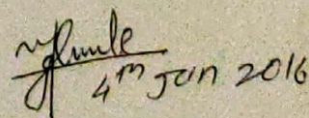 4th Jan 2016